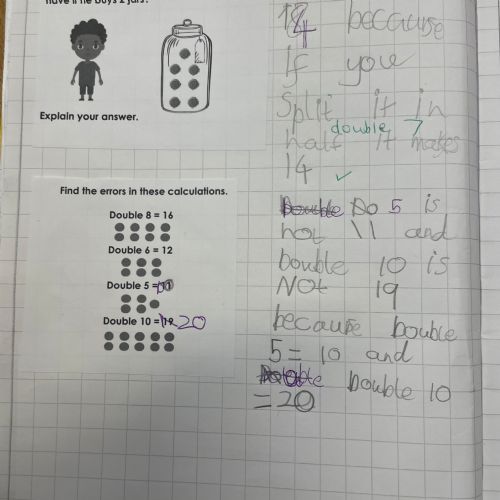 have if he buys 2 jars?
Explain your answer.
14 because
if you
Split it in
double 7
half it makes
14 ✓
Find the errors in these calculations.
Double 8 = 16
Double 6 = 12
Double 5 =
Double 10 = 20
Do 5 is
not 11 and
bouble 10 is
NOt 19
because bouble
5 = 10 and
Double 10
= 20